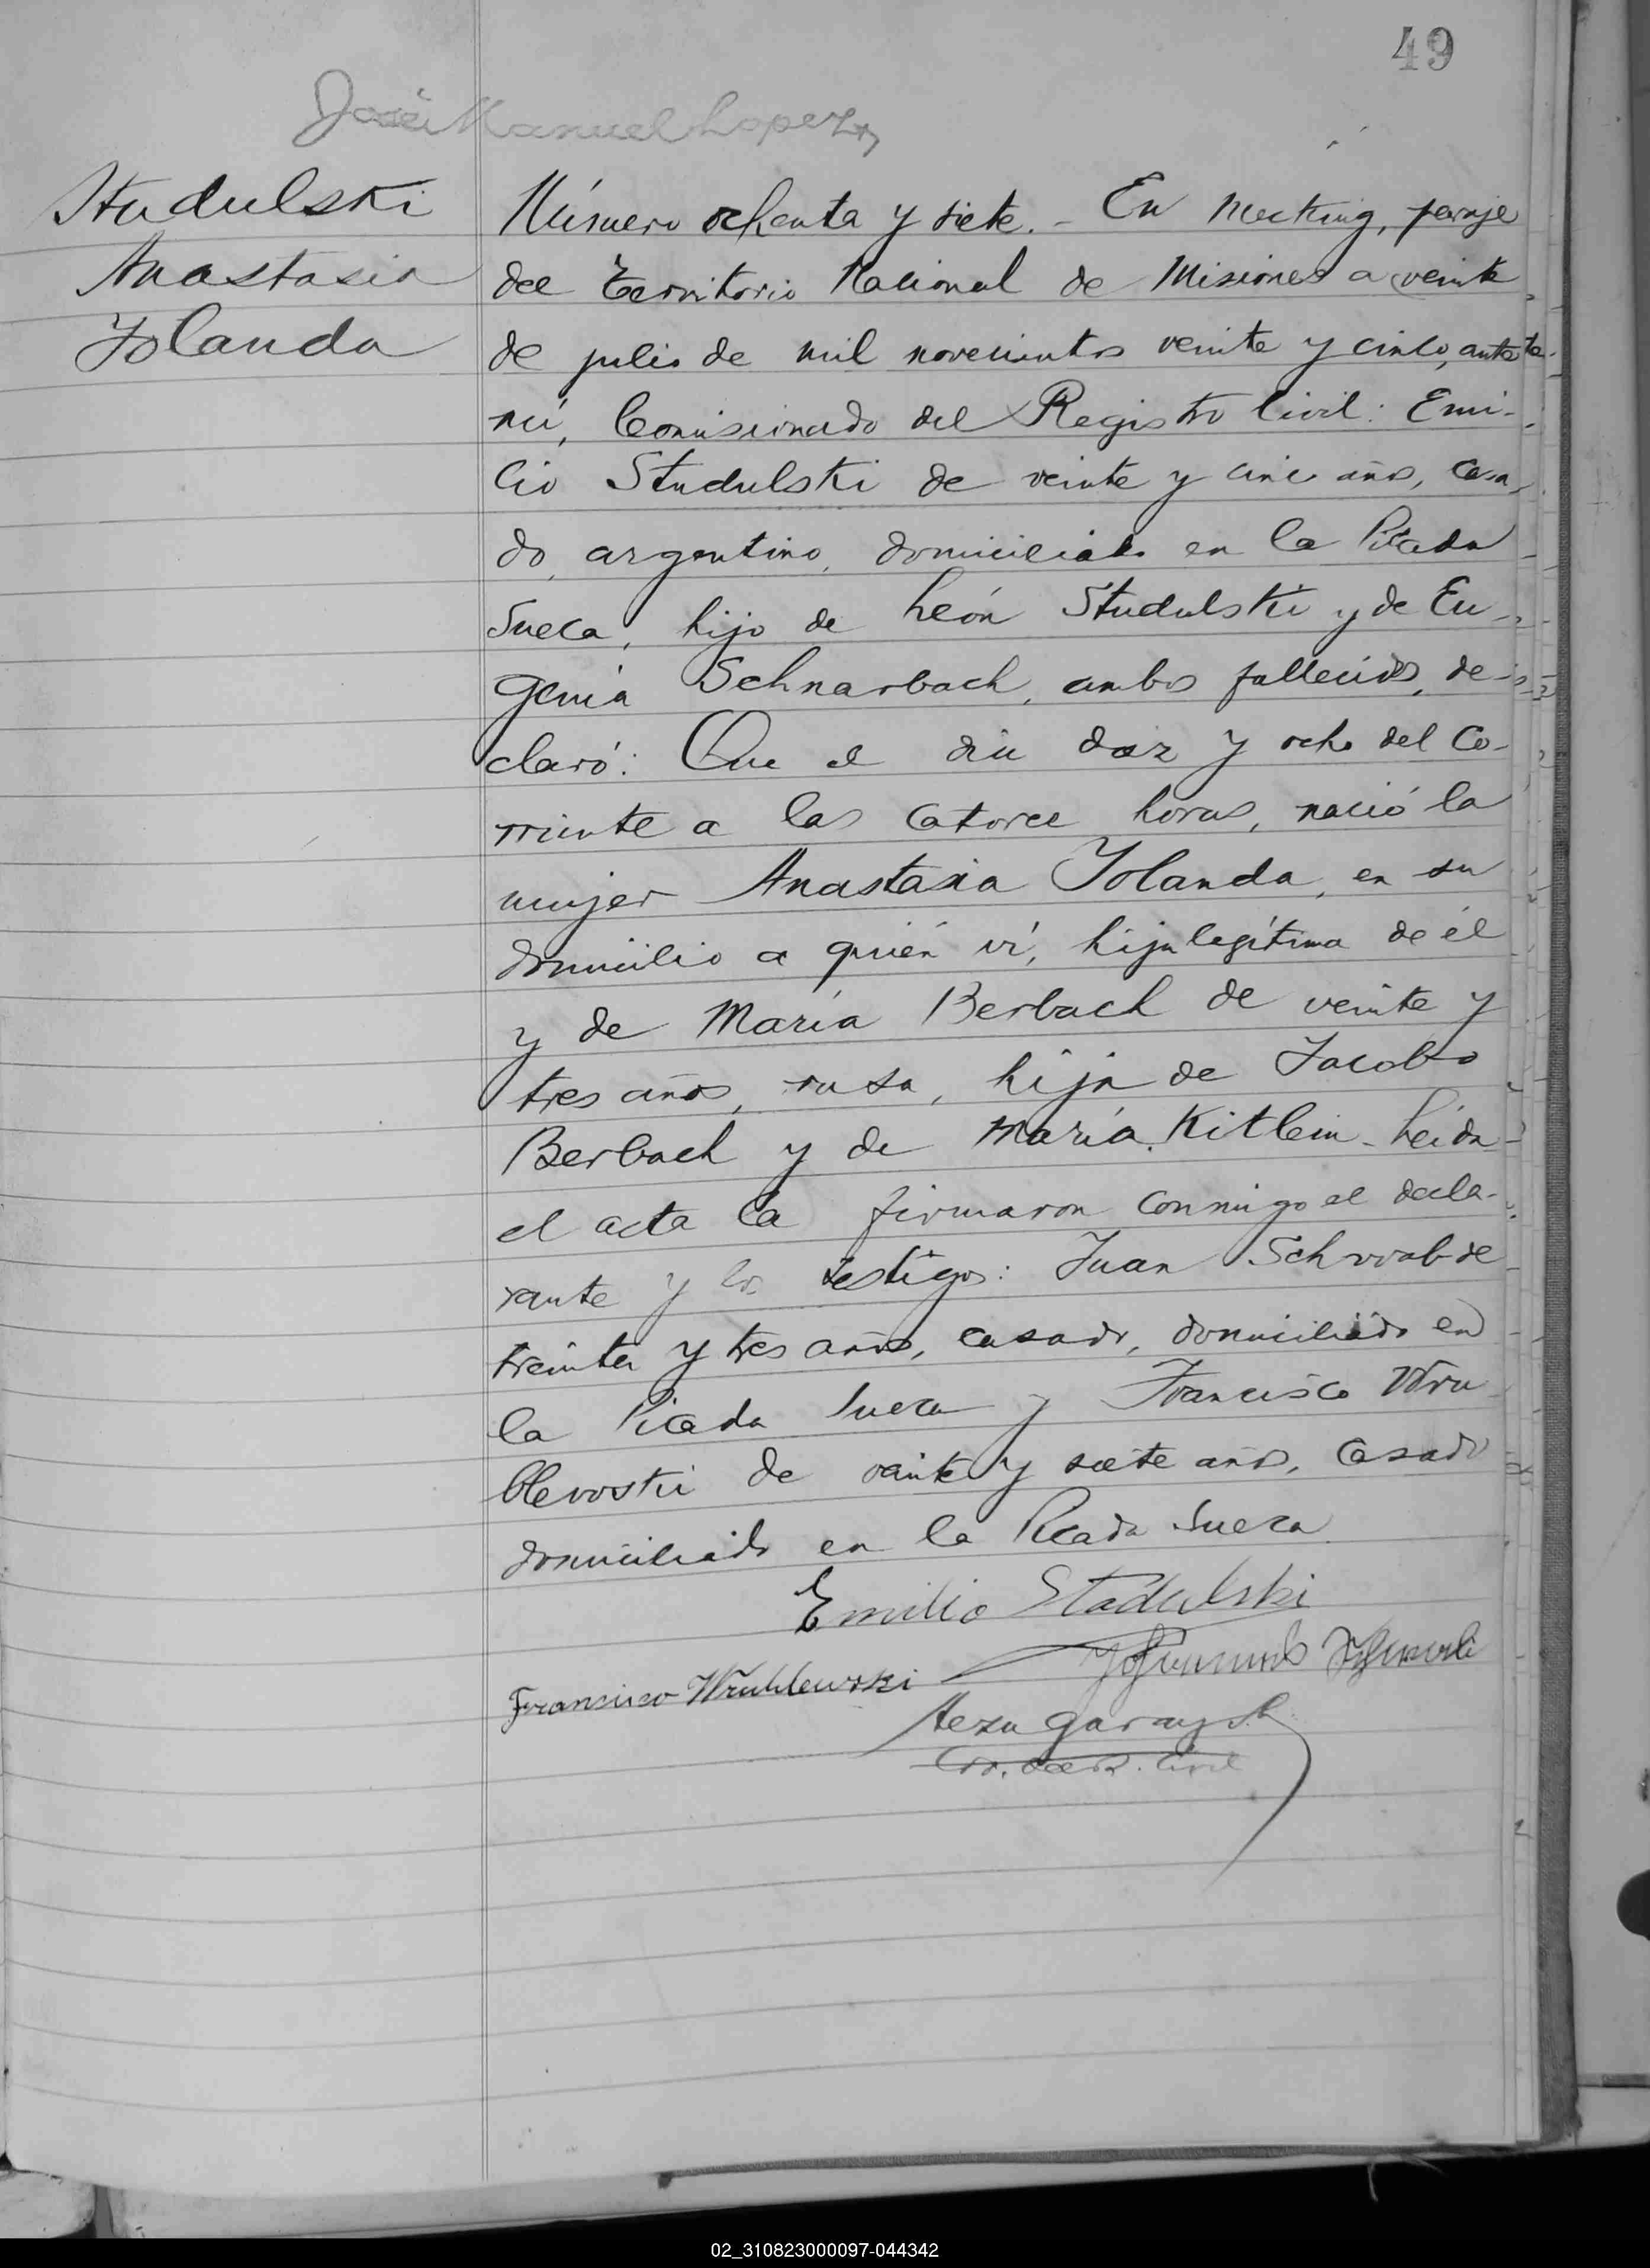 49
José Manuel Lopez
Studulski
Anastasia
Yolanda
Número ochenta y siete. - En Mecking, paraje
del Territorio Nacional de Misiones a veinte
de julio de mil novecientos veinte y cinco, ante
mí, Comisionado del Registro Civil: Emi-
lio Studulski de veinte y cinco años, casa-
do, argentino, domiciliado en la Picada
Sueca, hijo de León Studulski y de Eu-
genia Schnarbach, ambos fallecidos, de-
claró: Que el día diez y ocho del co-
rriente a las catorce horas, nació la
mujer Anastasia Yolanda, en su
domicilio a quién ví, hija legítima de él
y de María Berbach de veinte y
tres años, rusa, hija de Jacobo
Berbach y de María Kitlein. Leida
el acta la firmaron conmigo el decla-
rante y los testigos: Juan Schwab de
treinta y tres años, casado, domiciliado en
la Picada Sueca y Francisco Wru
blevoski de veinte y siete años, casado
domiciliado en la Picada Sueca
Emilio Stadulski
Francisco Wruhlewski
02_310823000097-044342